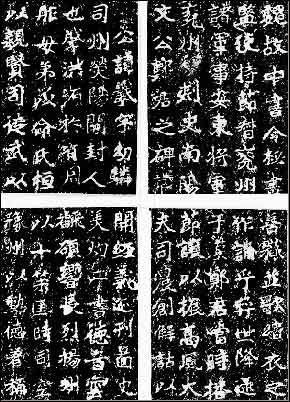 魏故中書令秘書
監使持節督兗州
諸軍事安東將軍
兗州刺史南陽
文公鄭君之碑
公諱羲字幼驎
司州滎陽開封人
也肇洪源於有周
胤母弟以命氏桓
以親賢司徒武以
善職並歌緇衣之
作誦乎奕世降逮
于漢鄭君當時播
節讓以振高風大
夫司農創解詁以
開經義迹刊圖史
美灼二書德音雲
翻碩響長烈揚州
以十策匡時司空
豫州以勳德著稱